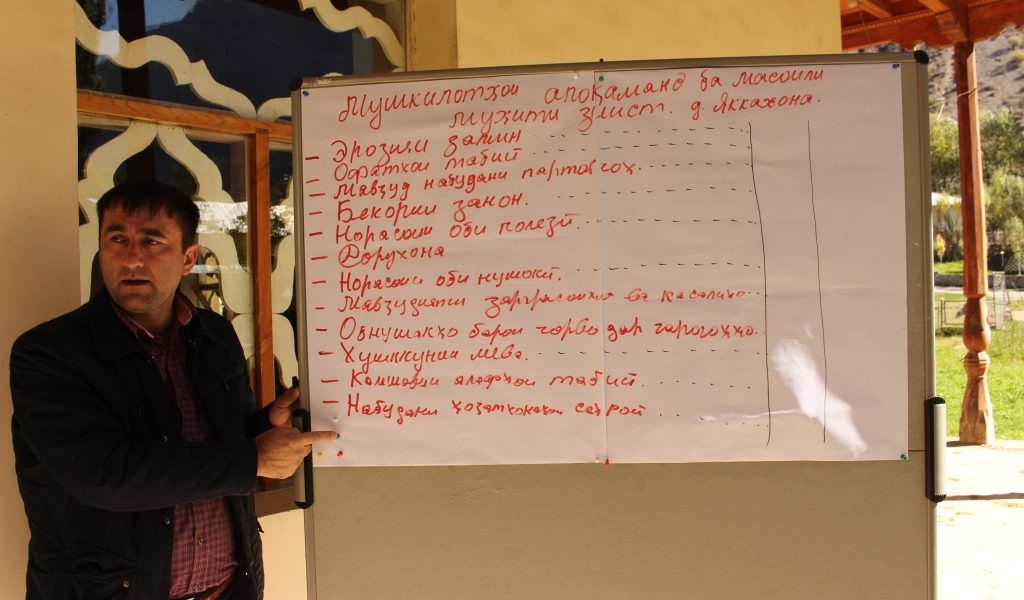 Мушкилотҳои алоқаманд ба масоили
муҳити зист. д. Яккахона.
– Эрозияи замин
– Офатҳои табий
– Мавҷуд набудани партовгоҳ.
– Бекории занон.
– Норасоии оби полезӣ.
– Дорухона
– Норасоии оби нушокӣ.
– Мавҷудияти зараррасонҳо ва касалиҳо
– Обнушакҳо барои чорво дар чарогоҳҳо.
– Хушккунии мева.
– Камшавии алафҳои табий.
– Набудани ҳоҷатхонаҳои саҳроӣ